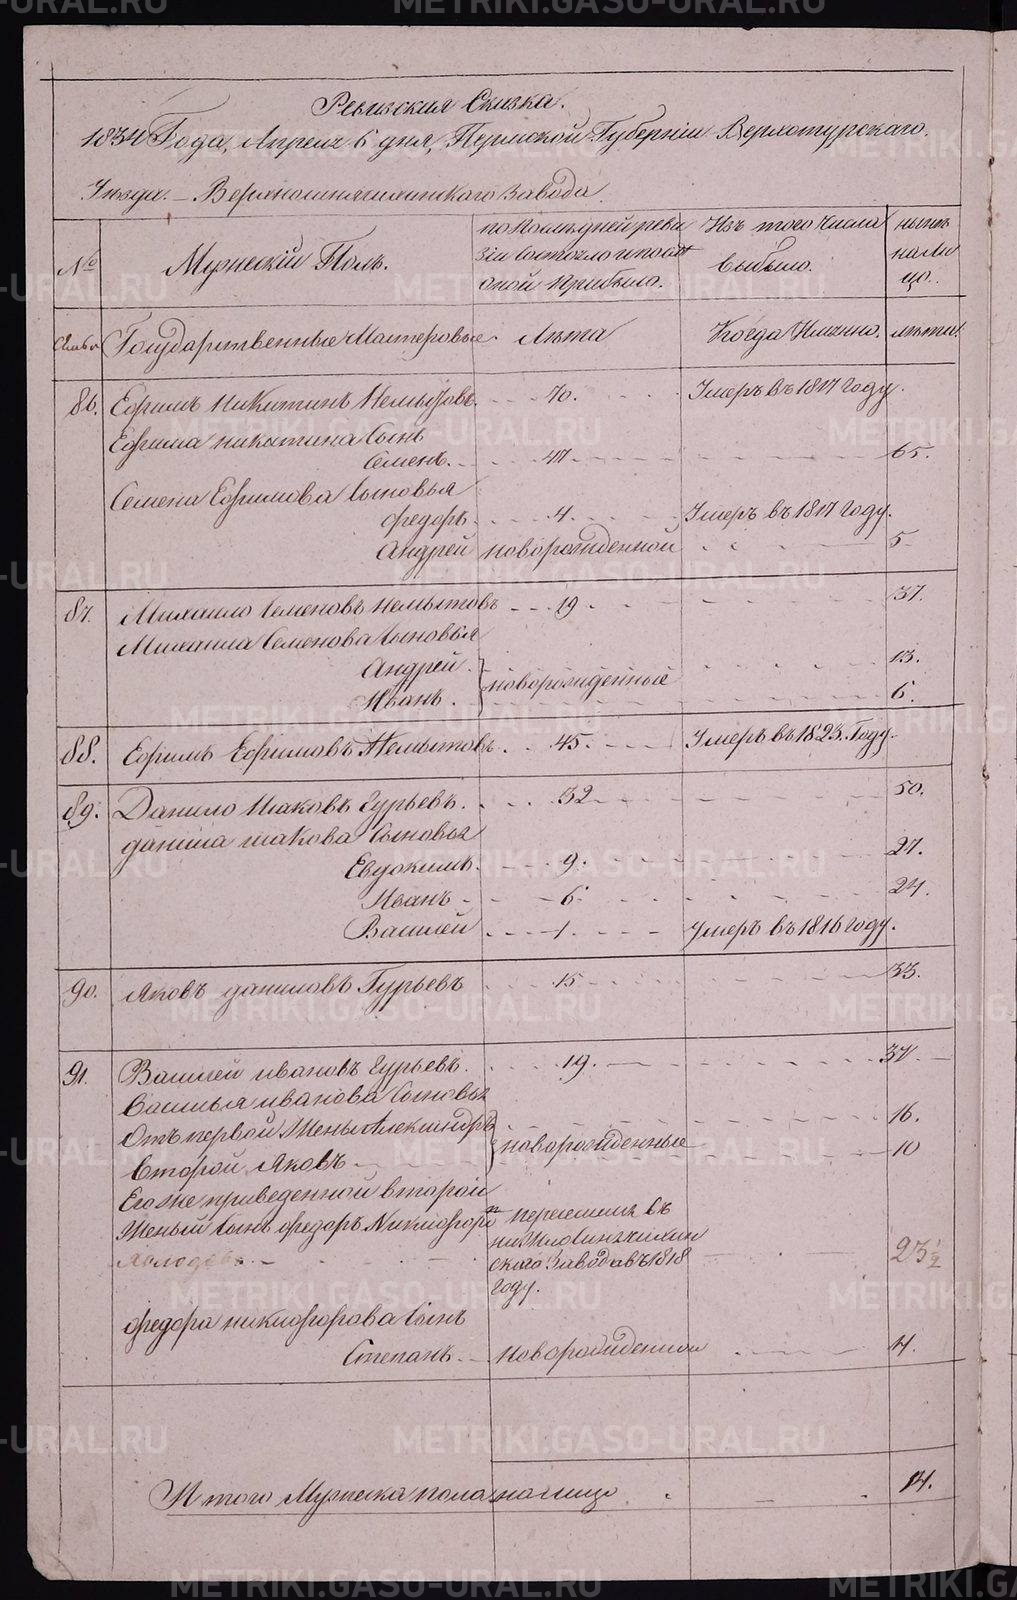 Ревизская Сказка.
1834 Года, Апреля 6 дня, Пермской Губернии Верхотурскаго.
Уезда. – Завода
№
Мужескій Полъ.
по последней реви
зіи состояло и после
оной прибыло.
Изъ того Числа
выбыло.
ныне
нали
цо.
Семьи
Государственные Мастеровые.
Лѣта
Когда Имянно.
лѣты.
86. Ефимъ Никитинъ Немытовъ. 70. Умеръ въ 1817 году.
Ефима никитина Сынъ
Семенъ. 47 65.
Семена Ефимова Сыновья
Федоръ. 4. Умеръ въ 1817 году.
Андрей новорожденной 5
87. Михаило Семеновъ Немытовъ 19. 37.
Михаила Семенова Сыновья
Андрей 13.
новорожденные
Иванъ. 6.
88. Ефимъ Ефимовъ Немытовъ. 45. Умеръ въ 1823. Году.
89. Данило Исаковъ Гурьевъ. 32 50.
данила исакова Сыновья
Евдокимъ. 9. 27.
Иванъ 6 24.
Василей 1. Умеръ въ 1816 году.
90. Яковъ даниловъ Гурьевъ 15 33.
91. Василей ивановъ Гурьевъ. 19. 37
Василья иванова Сыновья
Отъ первой Жены Александръ 16.
новорожденные
Второй Яковъ 10
Его же приведенной второй
Женый Сынъ федоръ Никифоро
переселенъ съ
Завода въ 1818
году.
23 1/2
федора никифорова Сынъ
Степанъ новорожденной 4.
Итого Мужеска пола налицо 14.
METRIKI.GASO-URAL.RU